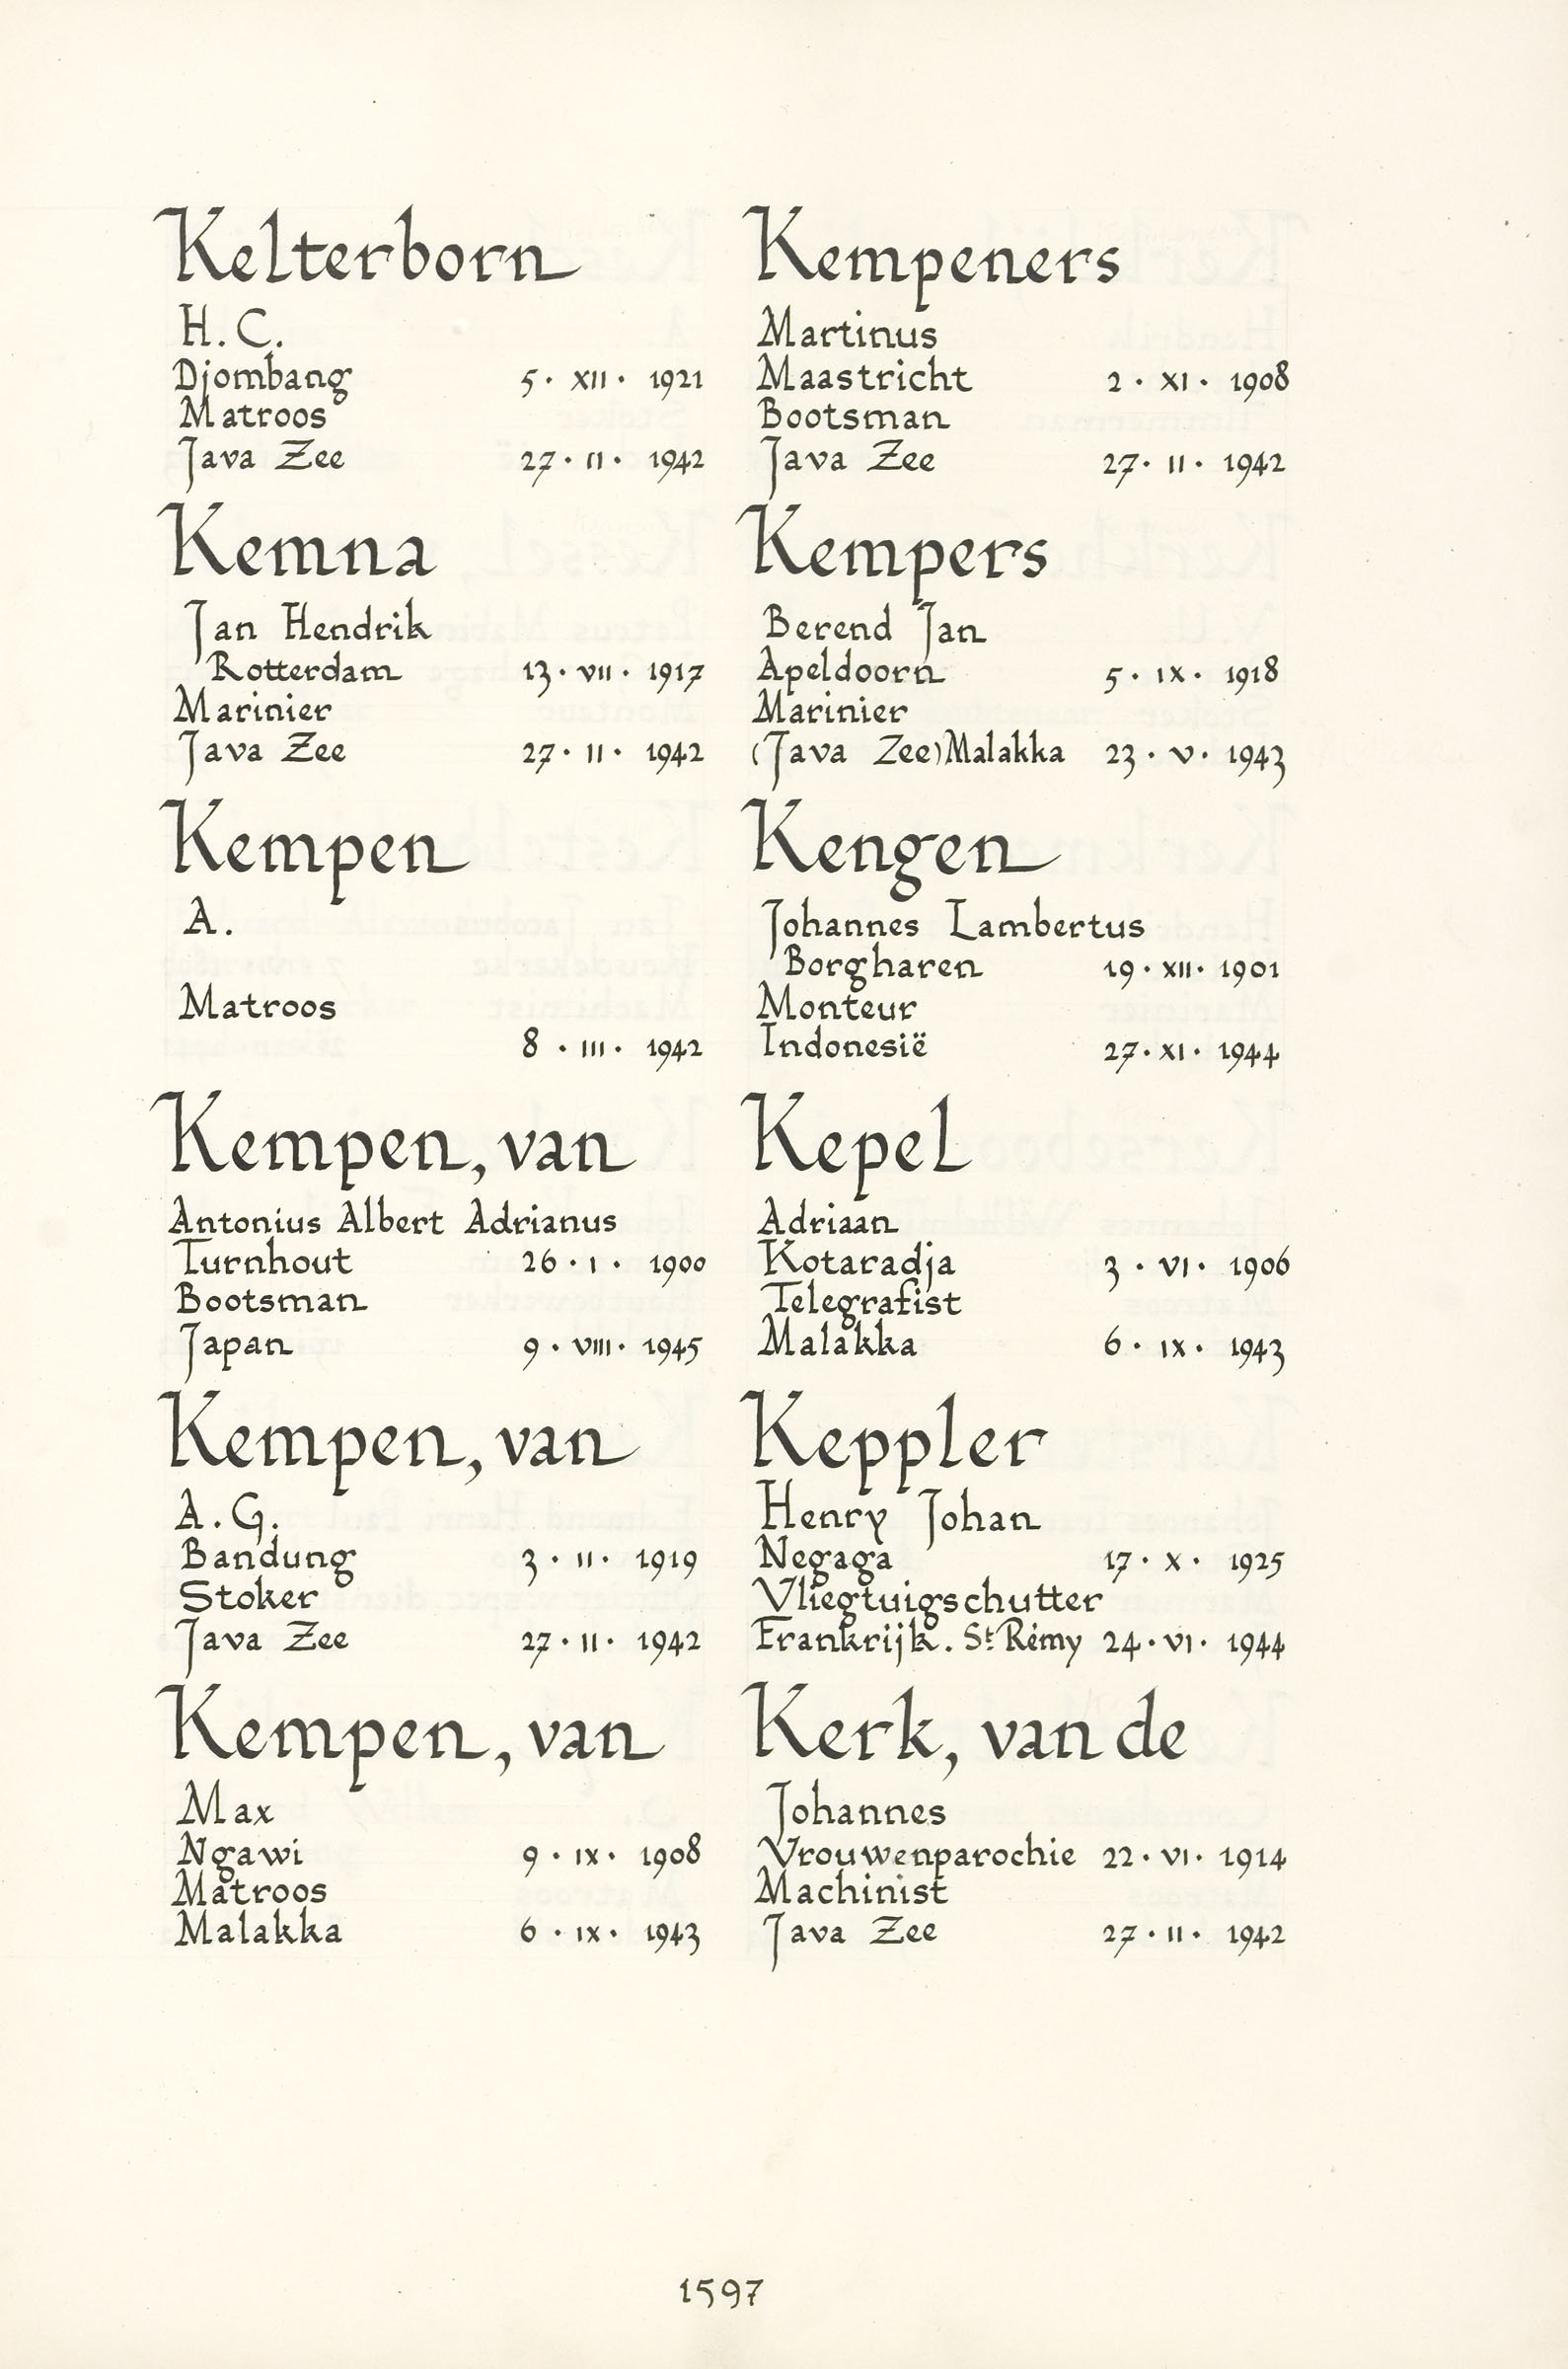 Kelterborn
H. C.
Djombang 5 · XII · 1921
Matroos
Java Zee 27 · II · 1942
Kemna
Jan Hendrik
Rotterdam 13 · VII · 1917
Marinier
Java Zee 27 · II · 1942
Kempen
A.
Matroos
8 · III · 1942
Kempen, van
Antonius Albert Adrianus
Turnhout 26 · I · 1900
Bootsman
Japan 9 · VIII · 1945
Kempen, van
A. G.
Bandung 3 · II · 1919
Stoker
Java Zee 27 · II · 1942
Kempen, van
Max
Ngawi 9 · IX · 1908
Matroos
Malakka 6 · IX · 1943
Kempeners
Martinus
Maastricht 2 · XI · 1908
Bootsman
Java Zee 27 · II · 1942
Kempers
Berend Jan
Apeldoorn 5 · IX · 1918
Marinier
(Java Zee) Malakka 23 · V · 1943
Kengen
Johannes Lambertus
Borgharen 19 · XII · 1901
Monteur
Indonesië 27 · XI · 1944
Kepel
Adriaan
Kotaradja 3 · VI · 1906
Telegrafist
Malakka 6 · IX · 1943
Keppler
Henry Johan
Negaga 17 · X · 1925
Vliegtuigschutter
Frankrijk. St Rémy 24 · VI · 1944
Kerk, van de
Johannes
Vrouwenparochie 22 · VI · 1914
Machinist
Java Zee 27 · II · 1942
1597